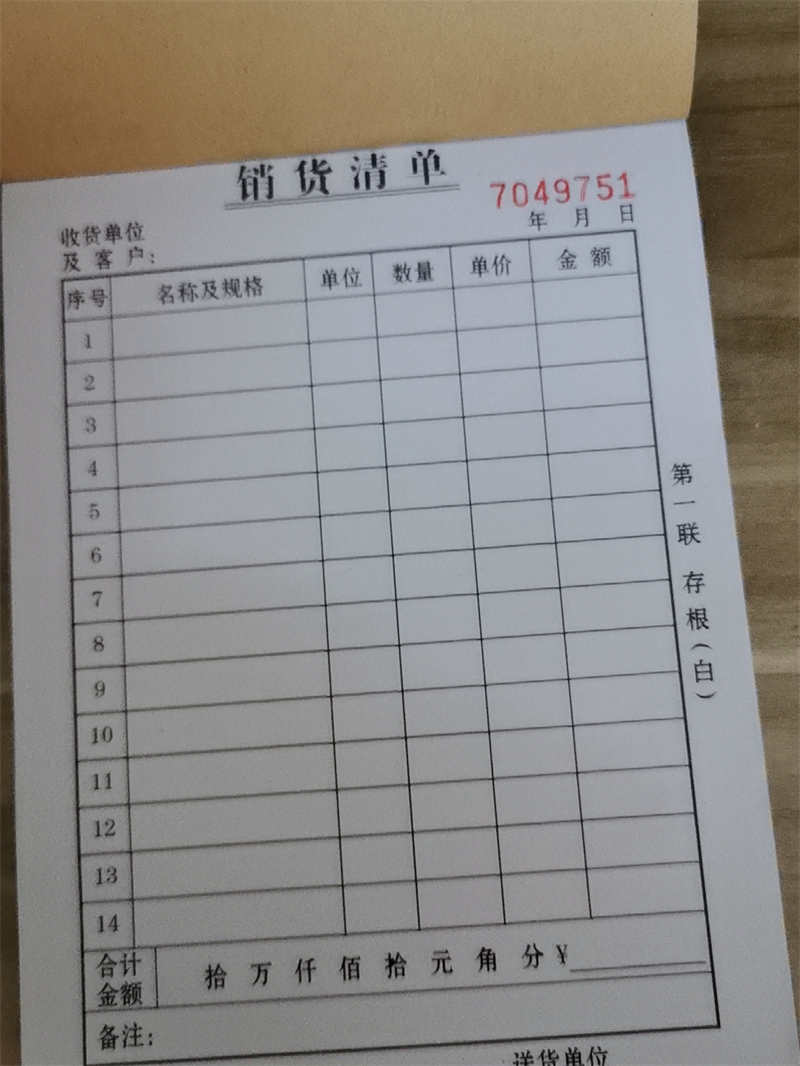 销货清单
7049751
年 月 日
收货单位
及客户：
序号 名称及规格 单位 数量 单价 金额
1
2
3
4
5
6
7
8
9
10
11
12
13
14
合计
金额 拾 万 仟 佰 拾 元 角 分 ¥
备注：
送货单位
第一联 存根（白）